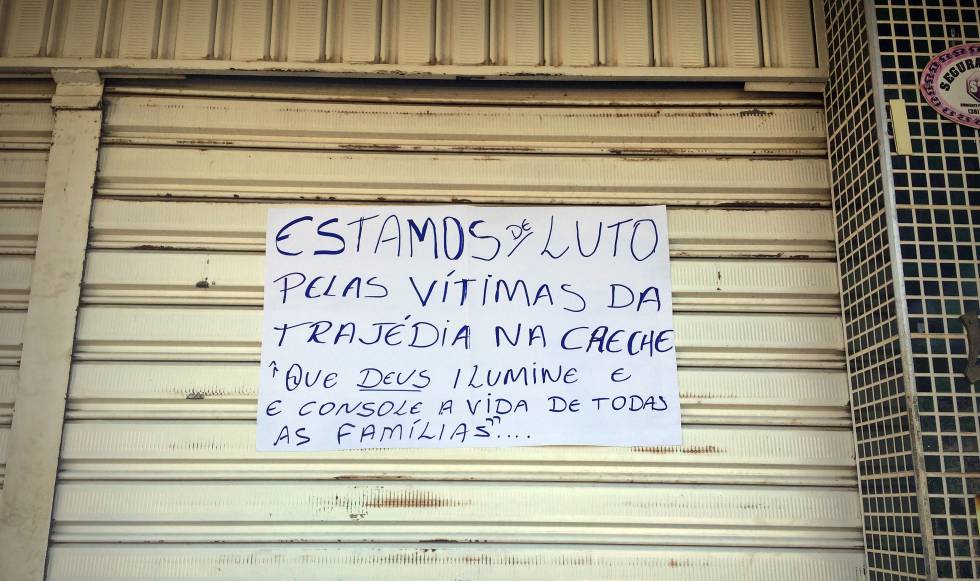 ESTAMOS DE LUTO
PELAS VÍTIMAS DA
TRAJÉDIA NA CRECHE
"QUE DEUS ILUMINE E
E CONSOLE A VIDA DE TODAS
AS FAMÍLIAS"....
SEGURA